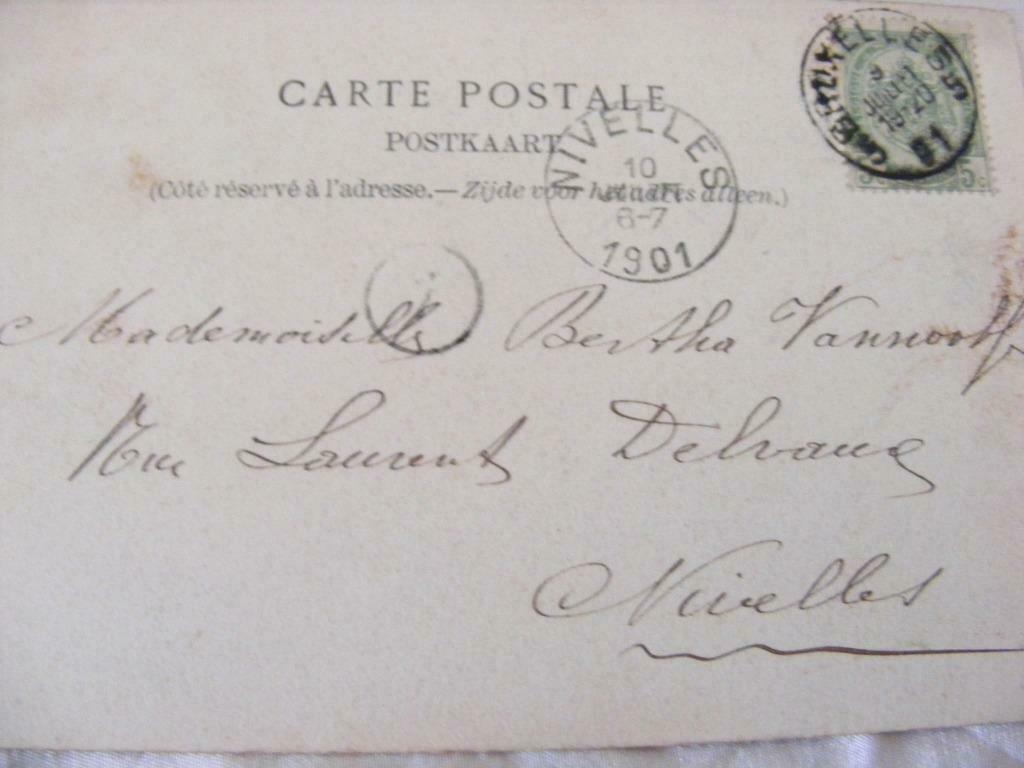 CARTE POSTALE
POSTKAART
(Côté réservé à l'adresse.— Zijde voor het adres alleen.)
NIVELLES
10
6-7
1901
BRUXELLES
5
Mademoiselle Bertha
Rue Laurent Delvaux
Nivelles